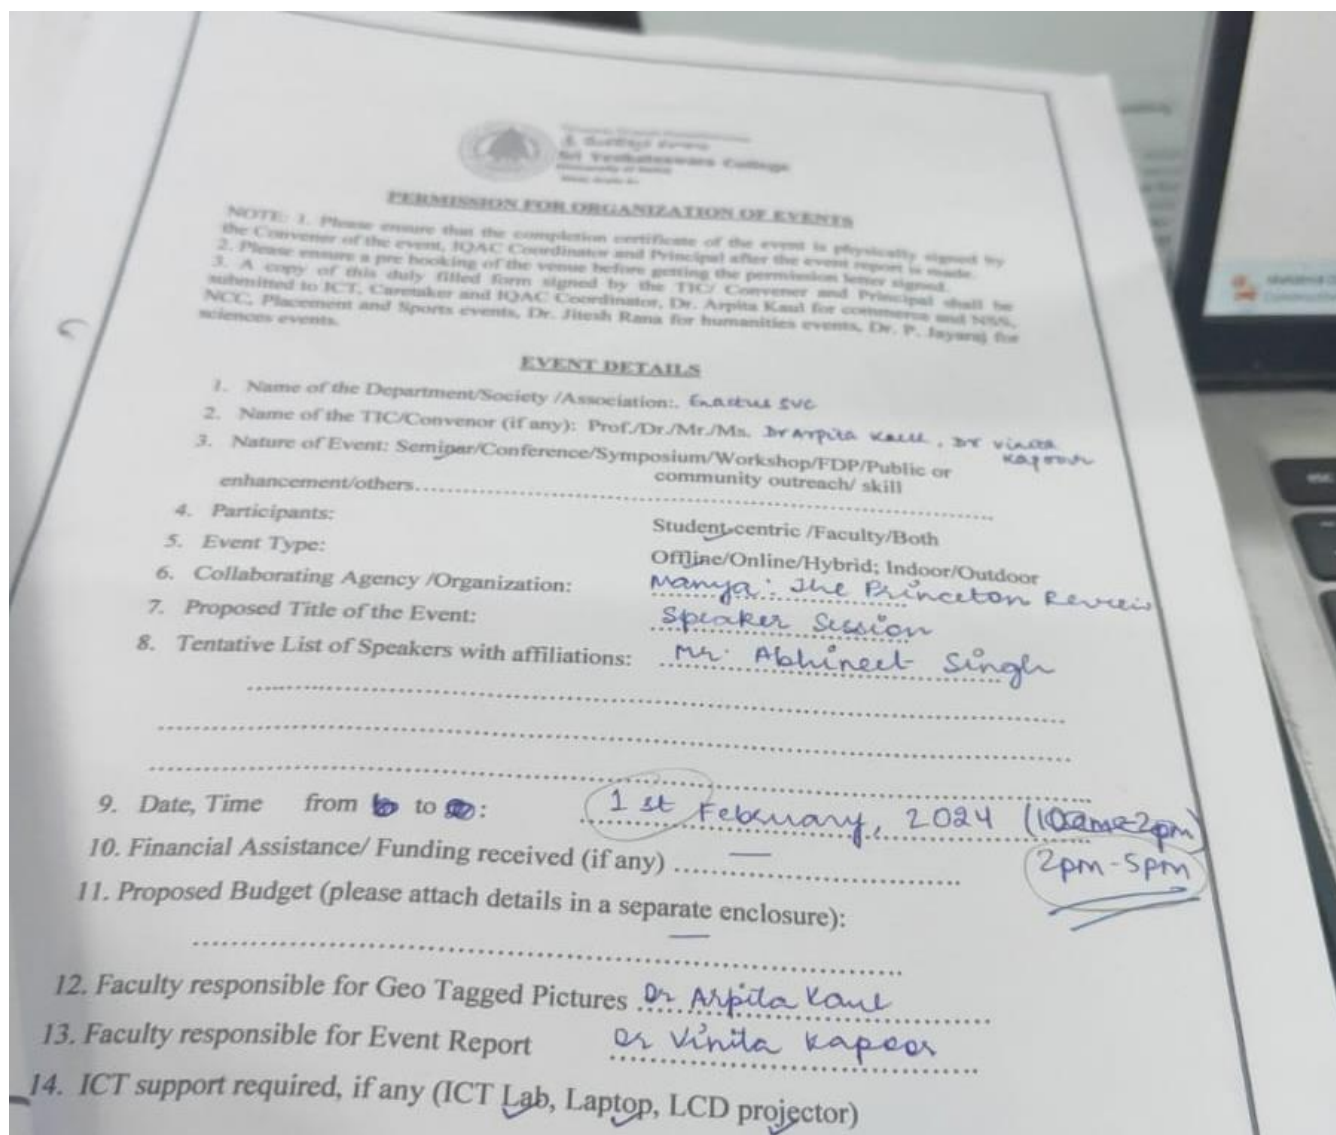 Sri Venkateswara College
PERMISSION FOR ORGANIZATION OF EVENTS
NOTE: 1. Please ensure that the completion certificate of the event is physically signed by
the Convener of the event, IQAC Coordinator and Principal after the event report is made.
2. Please ensure a pre booking of the venue before getting the permission letter signed.
3. A copy of this duly filled form signed by the TIC/ Convener and Principal shall be
submitted to ICT, Caretaker and IQAC Coordinator, Dr. Arpita Kaul for commerce and NSS,
NCC, Placement and Sports events, Dr. Jitesh Rana for humanities events, Dr. P. Jayaraj for
sciences events.
EVENT DETAILS
1. Name of the Department/Society /Association:. Enactus SVC
2. Name of the TIC/Convenor (if any): Prof./Dr./Mr./Ms. Dr Arpita Kaul, Dr Vinita
Kapoor
3. Nature of Event: Seminar/Conference/Symposium/Workshop/FDP/Public or
community outreach/ skill
enhancement/others
4. Participants: Student-centric /Faculty/Both
5. Event Type: Offline/Online/Hybrid; Indoor/Outdoor
6. Collaborating Agency /Organization: Manya: The Princeton Review
7. Proposed Title of the Event: Speaker Session
8. Tentative List of Speakers with affiliations: Mr. Abhineet Singh
9. Date, Time from to : 1st February, 2024 (10am-2pm)
2pm-5pm
10. Financial Assistance/ Funding received (if any) —
11. Proposed Budget (please attach details in a separate enclosure):
—
12. Faculty responsible for Geo Tagged Pictures Dr Arpita Kaul
13. Faculty responsible for Event Report Dr Vinita Kapoor
14. ICT support required, if any (ICT Lab, Laptop, LCD projector)
esc